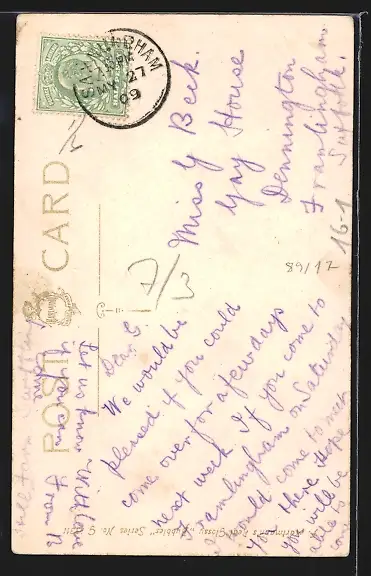 SAXMUNDHAM
MY 27
09
POST CARD
Miss G Beck
Gay House
Dennington
Framlingham
Suffolk.
16-1
89/17
7/3
Dear G
We would be
pleased if you could
come over for a few days
next week If you come to
Framlingham on Saturday
would come to meet
you there I hope
you will be
able to
come
Let us know
if you can
come
With love
From B
Hartmann's Real Glossy "Rubbier" Series No. G